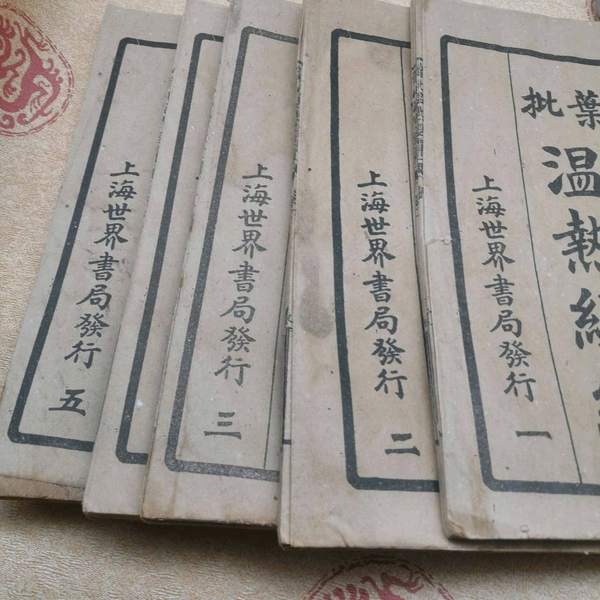 葉批
温熱經
上海世界書局發行 一
上海世界書局發行 二
上海世界書局發行 三
上海世界書局發行 五